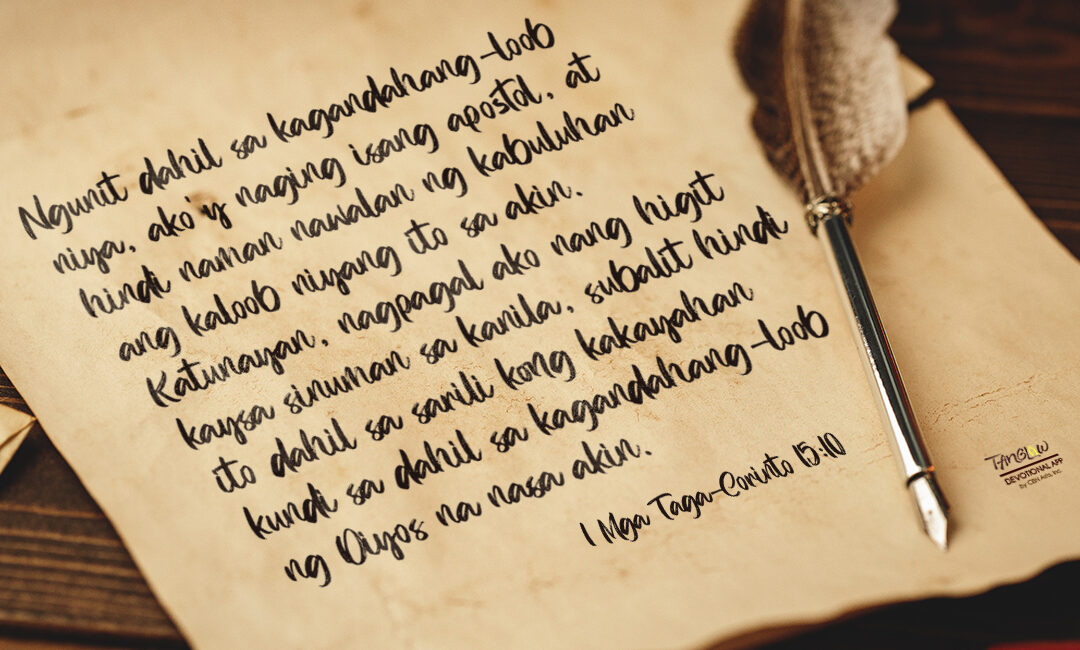 Ngunit dahil sa kagandahang-loob
niya, ako'y naging isang apostol, at
hindi naman nawalan ng kabuluhan
ang kaloob niyang ito sa akin.
Katunayan, nagpagal ako nang higit
kaysa sinuman sa kanila, subalit hindi
ito dahil sa sarili kong kakayahan
kundi sa dahil sa kagandahang-loob
ng Diyos na nasa akin.
1 Mga Taga-Corinto 15:10
TANGLAW
DEVOTIONAL APP
by CBN Asia, Inc.